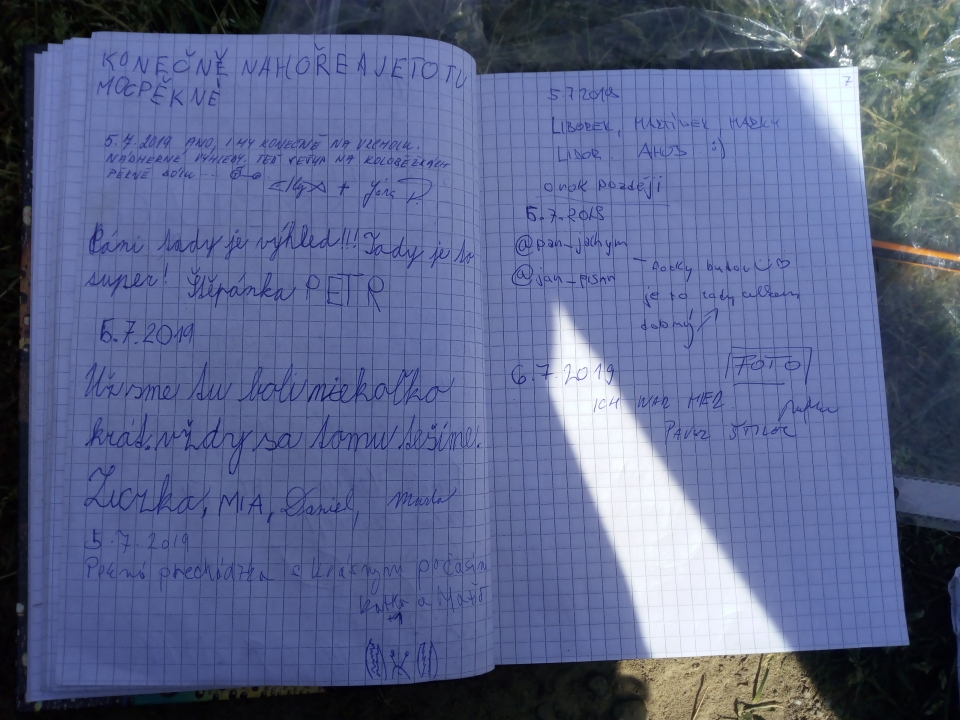 KONEČNĚ NAHOŘE A JE TO TU
MOCPĚKNÉ
5.7.2019 ANO, I MY KONEČNĚ NA VRCHOLU.
NÁDHERNÉ VÝHLEDY. TEĎ NA KOLOBĚŽKÁCH
DOLŮ...
+ Jára
Páni tady je výhled!!! Tady je to
super! Štěpánka PETR
5.7.2019
Už sme tu boli niekoľko
krát. vždy sa tomu tešíme.
Zuzka, MIA, Daniel,
5.7.2019
Pěkná procházka s krásným počasím
Katka a Matěj
7
5.7.2019
LIBOREK, MARTÍNEK,
LIBOR. AHOJ :)
o rok později
5.7.2019
@pan_jachym
@jan_pisnn
je to tady
dobrý
6.7.2019
FOTO
ICH WAR HER
PAVOL